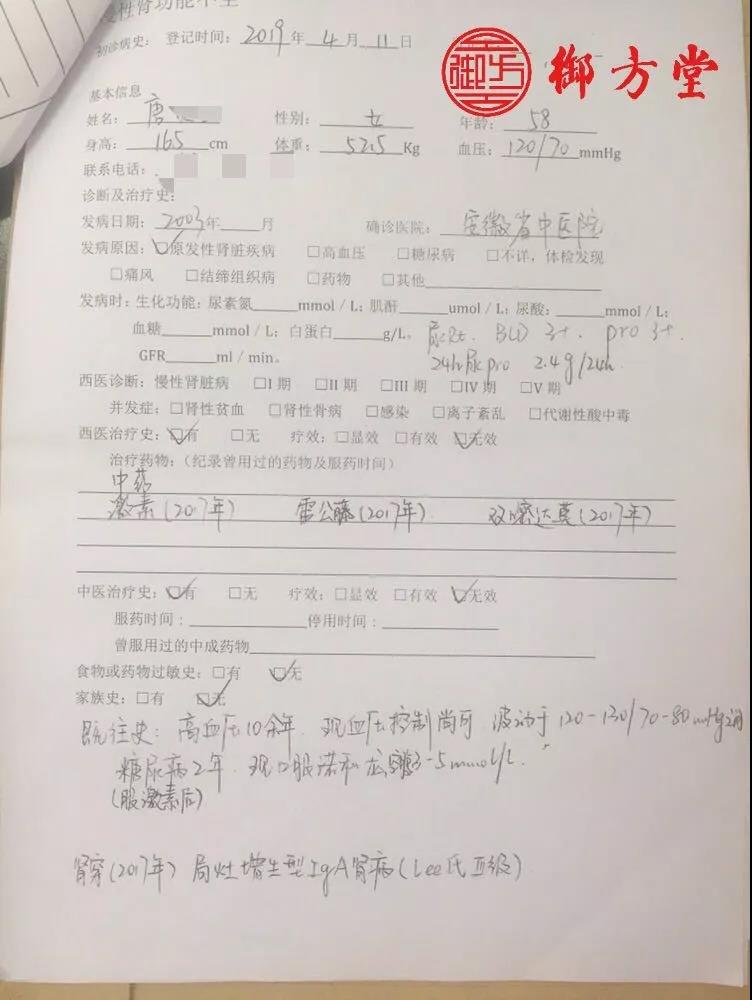 慢性肾功能不全
御方堂
初诊病史： 登记时间：2019年 4月 11日
基本信息
姓名：唐 性别：女 年龄：58
身高：165 cm 体重：52.5 Kg 血压：120/70 mmHg
联系电话：
诊断及治疗史：
发病日期：2003年 月 确诊医院：安徽省中医院
发病原因：☑原发性肾脏疾病 □高血压 □糖尿病 □不详，体检发现
□痛风 □结缔组织病 □药物 □其他
发病时：生化功能：尿素氮 mmol / L；肌酐 umol / L；尿酸： mmol / L；
血糖 mmol / L；白蛋白 g/L。 尿Rt. BLD 3+. pro 3+.
GFR ml / min。 24h尿pro 2.4g/24h
西医诊断：慢性肾脏病 □I 期 □II 期 □III 期 □IV 期 □V 期
并发症：□肾性贫血 □肾性骨病 □感染 □离子紊乱 □代谢性酸中毒
西医治疗史：☑有 □无 疗效：□显效 □有效 ☑无效
治疗药物：（纪录曾用过的药物及服药时间）
中药
激素(2017年) 雷公藤(2017年). 双嘧达莫(2017年)
中医治疗史：☑有 □无 疗效：□显效 □有效 ☑无效
服药时间： 停用时间：
曾服用过的中成药物
食物或药物过敏史：□有 ☑无
家族史：□有 ☑无
既往史：高血压10余年. 现血压控制尚可. 波动于120-130/70-80mmHg之间
糖尿病2年. 现口服诺和龙 3-5mmol/L.
(服激素后)
肾穿(2017年) 局灶增生型IgA肾病(Lee氏Ⅱ级)